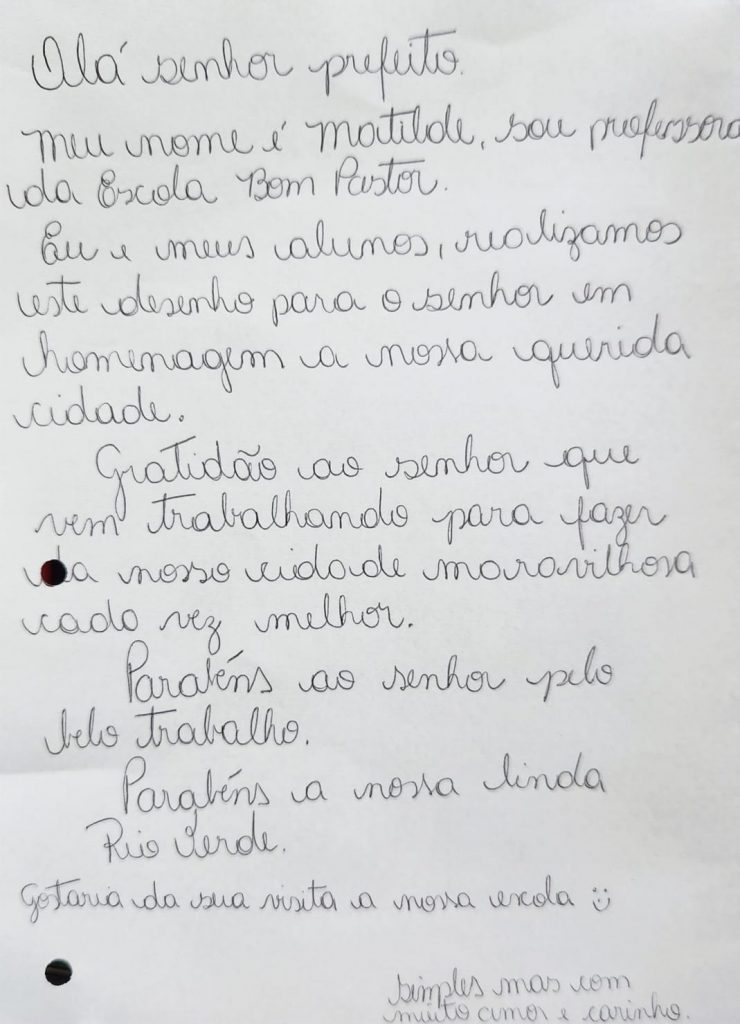 Olá senhor prefeito.
Meu nome é Matilde, sou professora
da Escola Bom Pastor.
Eu e meus alunos, realizamos
este desenho para o senhor em
homenagem a nossa querida
cidade.
Gratidão ao senhor que
vem trabalhando para fazer
da nossa cidade maravilhosa
cada vez melhor.
Parabéns ao senhor pelo
belo trabalho.
Parabéns a nossa linda
Rio Verde.
Gotaria da sua visita a nossa escola :)
simples mas com
muito amor e carinho.